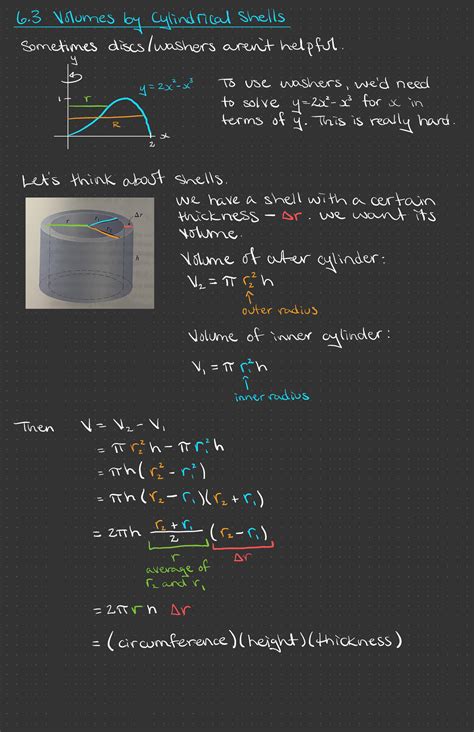 6.3 Volumes by Cylindrical Shells
Sometimes discs/washers aren't helpful.
y
y=2x²-x³
1
r
R
2
x
To use washers, we'd need
to solve y=2x²-x³ for x in
terms of y. This is really hard.
Let's think about shells.
r
r₁
r₂
Δr
h
We have a shell with a certain
thickness – Δr. We want its
volume.
Volume of outer cylinder:
V₂ = π r₂² h
↑
outer radius
Volume of inner cylinder:
V₁ = π r₁² h
↑
inner radius
Then V = V₂ - V₁
= π r₂² h - π r₁² h
= πh (r₂² - r₁²)
= πh (r₂ - r₁)(r₂ + r₁)
= 2πh (r₂ + r₁)/2 (r₂ - r₁)
r
Δr
average of
r₂ and r₁
= 2πr h Δr
= (circumference)(height)(thickness)